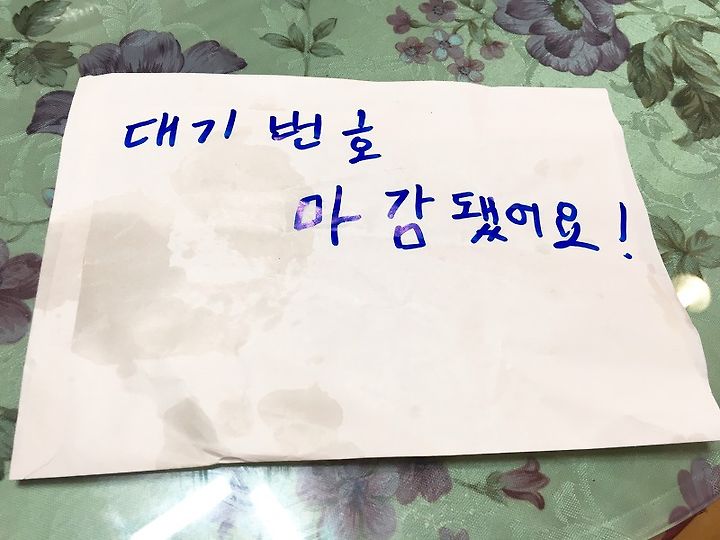 대기 번호
마감됐어요!